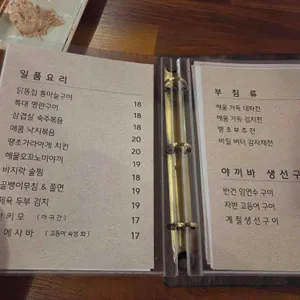 일품요리
닭똥집 통마늘구이 18
특대 명란구이 18
삼겹살 숙주볶음 18
매콤 낙지볶음 20
땡초가라아게 치킨 20
해물오꼬노미야끼 20
바지락 술찜 19
골뱅이무침 & 쫄면 19
제육 두부 김치 19
키모 (아귀간) 17
메사바 (고등어 숙성회) 17
부침류
해물 가득 대파전
해물 가득 김치전
땡초부추전
바질 버터 감자채전
야끼바 생선구
반건 임연수 구이
자반 고등어 구이
계절생선구이